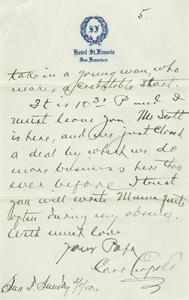 5.
SF
Hotel St. Francis
San Francisco
take in a young man, who
makes a creditable start.
It is 10:30 P.m. I
must leave you. Mr
is here, and we just closed
a deal by which we do
more business here than
ever before. I trust
you will write Mama
often during my absence.
With much love
Your Papa
San F. Sunday